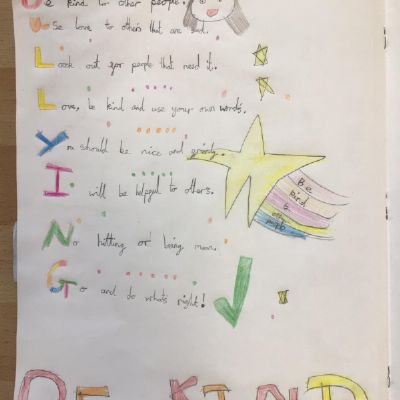 Be kind to other people.
Use love to others that are sad.
Look out for people that need it.
Love, be kind and use your own words.
You should be nice and
I will be helpful to others.
No hitting or being mean.
Go and do whats right!
Be
kind
&
BE KIND